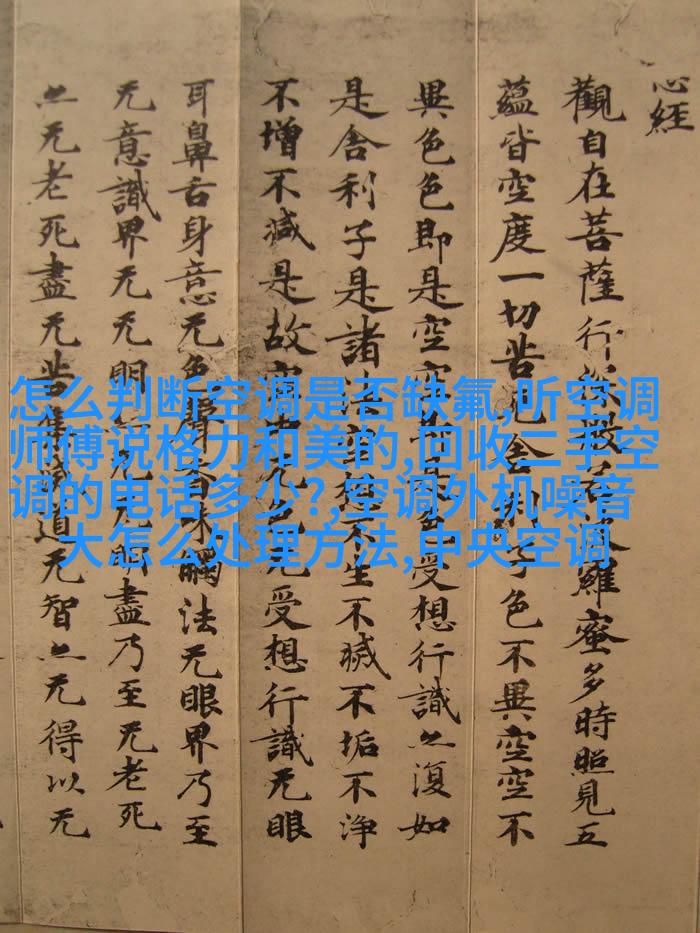 心經
觀自在菩薩行深般若波羅蜜多時照見五
蘊皆空度一切苦厄舍利子色不異空空不
異色色即是空空即是色受想行識亦復如
是舍利子是諸法空相不生不滅不垢不淨
不增不減是故空中无色无受想行識无眼
耳鼻舌身意无色聲香味觸法无眼界乃至
无意識界无无明亦无无明盡乃至无老死
亦无老死盡无苦集滅道无智亦无得以无
怎么判断空调是否缺氟,听空调
师傅说格力和美的,回收二手空
调的电话多少?,空调外机噪音
大怎么处理方法,中央空调